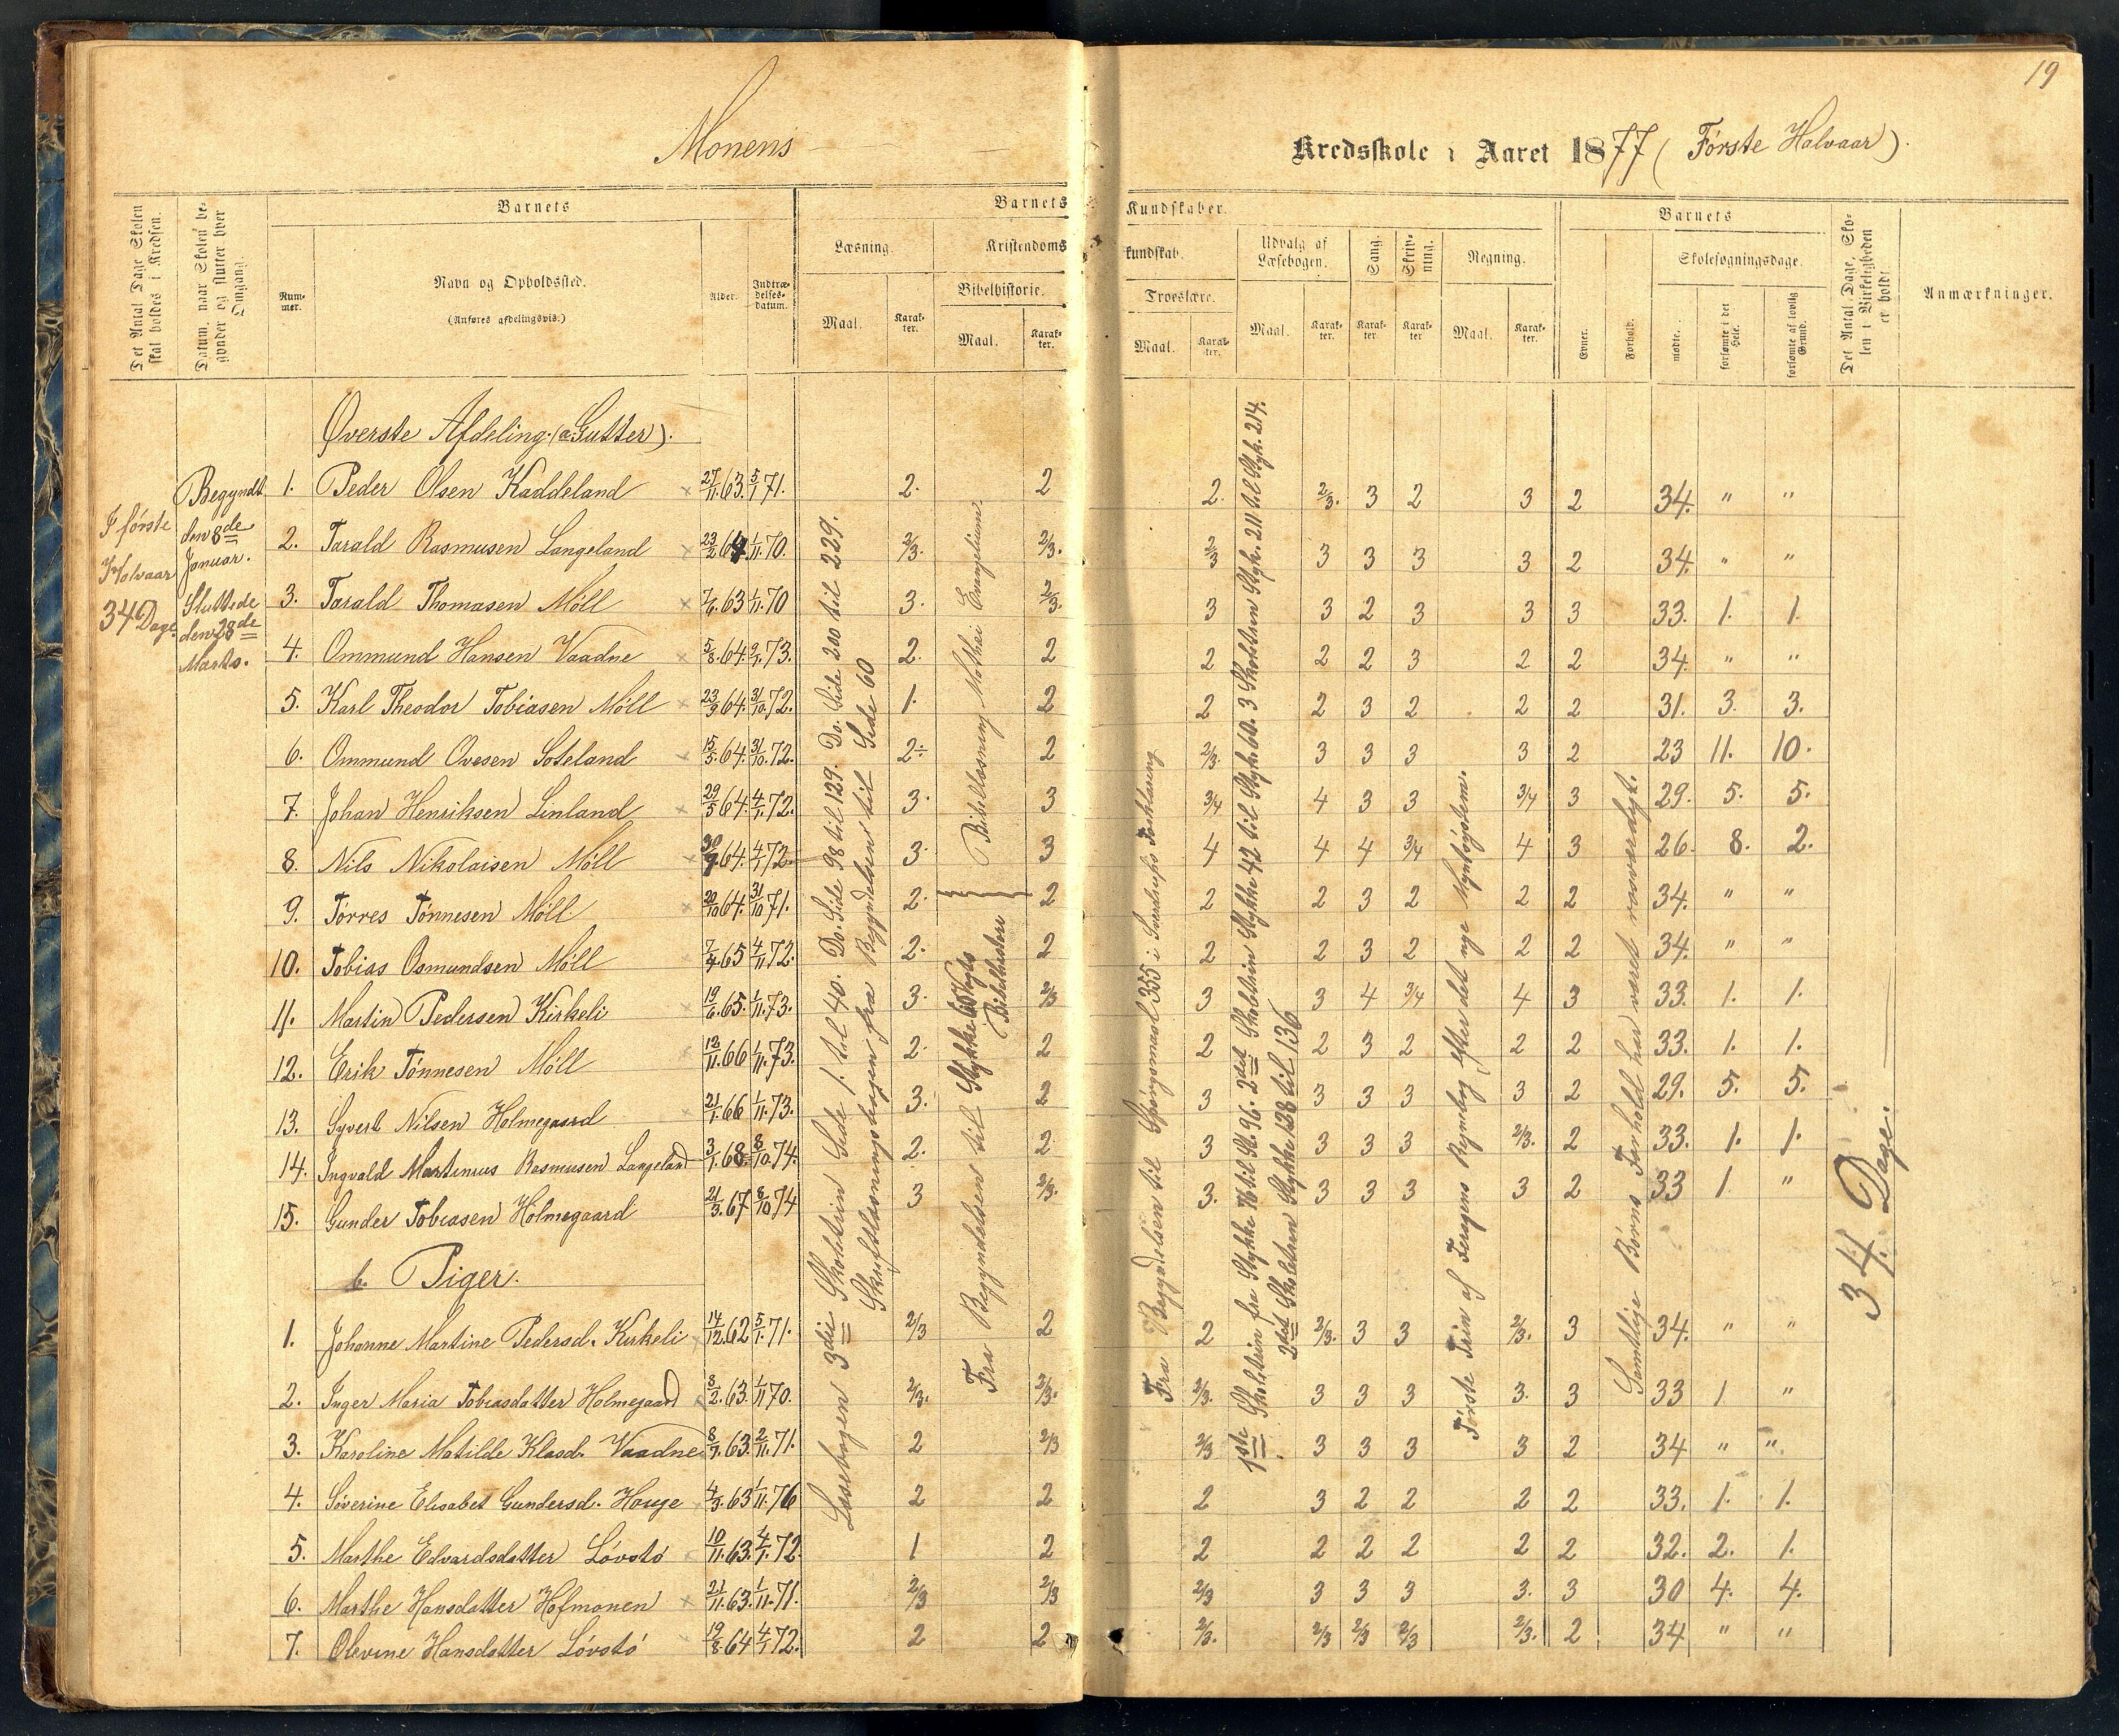 19
Monens
Kredsskole i Aaret 1877 (Første Halvaar).
Det Antal Dage Skolen skal holdes i Kredsen.
Datum, naar Skolen begynder og slutter hver Omgang.
Barnets
Nummer.
Navn og Opholdssted.
(Anføres afdelingsvis.)
Alder.
Indtrædelsesdatum.
Barnets Kundskaber.
Læsning.
Maal.
Karakter.
Kristendomskundskab.
Bibelhistorie.
Maal.
Karakter.
Troeslære.
Maal.
Karakter.
Udvalg af Læsebogen.
Maal.
Karakter.
Sang.
Karakter
Skrivning.
Karakter
Regning.
Maal.
Karakter.
Barnets
Evner.
Forhold.
Skolesøgningsdage.
mødte.
forsømte i det Hele.
forsømte af lovlig Grund.
Det Antal Dage, Skolen i Virkeligheden er holdt
Anmærkninger.
I første Halvaar 34 Dage.
Begyndt den 8de Januar. Sluttede den 28de Marts.
Øverste Afdeling. (a Gutter).
1. Peder Olsen Kaddeland 27/11.63. 5/1 71. 2. 2 2. 2/3. 3 2 3 2 34. " "
2. Tarald Rasmusen Langeland 23/2 64 1/11.70. 2/3. 2/3. 2/3 3 3 3 3 2 34. " "
3. Tarald Thomasen Möll 7/6.63 1/11.70 3. 2/3. 3 3 2 3 3 3 33. 1. 1.
4. Ommund Hansen Vaadne 5/8.64. 9/1.73. 2. 2 2 2 2 3 2 2 34. " "
5. Karl Theodor Tobiasen Möll 23/9 64. 31/10.72. 1. 2 2 2 3 2 2 2 31. 3. 3.
6. Ommund Ovesen Soteland 15/5.64. 31/10.72. 2÷ 2 2/3. 3 3 3 3 2 23 11. 10.
7. Johan Henriksen Linland 29/5 64. 4/1.72. 3. 3 3/4 4 3 3 3/4 3 29. 5. 5.
8. Nils Nikolaisen Möll 30/9 64. 4/1 72 3. 3 4 4 4 3/4 4 3 26. 8. 2.
9. Tørres Tønnesen Möll 20/10 64. 31/10 71. 2. 2 2 2 3 2 2 2 34. " "
10. Tobias Osmundsen Möll 7/4 65 4/11 72. 2. 2 2 2 3 2 2 2 34. " "
11. Martin Pedersen Kirkeli 19/6.65. 1/11.73. 3. 2/3 3 3 4 3/4 4 3 33. 1. 1.
12. Erik Tønnesen Möll 12/11 66 1/11.73. 2. 2 2 2 3 2 2 2 33. 1. 1.
13. Syvert Nilsen Holmegaard 21/1 66 1/11.73. 3. 2 3 3 3 3 3 2 29. 5. 5.
14. Ingvald Martinius Rasmusen Langeland 3/1.68. 8/10.74. 2. 2 3 3 3 3 2/3. 2 33. 1. 1.
15. Gunder Tobiasen Holmegaard 21/3.67 8/10 74 3 2/3. 3. 3 3 3 3 2 33 1 "
b. Piger.
1. Johanne Martine Pedersd. Kirkeli 14/12.62 5/1.71. 2/3 2 2 2/3. 3 3 2/3. 3 34. " "
2. Inger Maria Tobiasdatter Holmegaard 8/2.63. 1/11 70. 2/3. 2/3. 2/3. 3 3 3 3. 3 33 1 "
3. Karoline Matilde Klasd. Vaadne 8/7.63. 2/11.71. 2 2/3 2/3 3 3 3 3 2 34 " "
4. Söverine Elisabet Gundersd. Hauge 4/3.63 1/11.76 2 2 2 3 2 2 2 2 33. 1. 1.
5. Marthe Edvardsdatter Lövstö 10/11.63. 4/1.72. 1 2 2 2 2 2 2 2 32. 2. 1.
6. Marthe Hansdatter Hofmonen 21/11.63. 1/11.71. 2/3 2/3 2/3 3 3 3 3. 3 30 4. 4.
7. Olevine Hansdatter Lövstö 19/8 64 4/1 72. 2 2 2/3. 2/3 2/3 2/3 2/3. 2 34 " "
Læsebogen 3die Skoletrin Side 1. til 40. Do. Side 98 til 129. Do. Side 200 til 229.
Skriftlæsningsbogen fra Begyndelsen til Side 60
Fra Begyndelsen til Stykke 65 Vogts Bibelhistorie
Bibellæsning Mathæi Evangelium
Fra Begyndelsen til Spørgsmaal 355 i Sverdrups Forklaring
1ste Skoletrin fra Stykke 76 til St. 96. 2det Skoletrin Stykke 42 til Stykke 60. 3 Skoletrin Styk. 211 til Styk. 214.
2det Skoletrin Stykke 128 til 136
Første Trin af Fergens Regnebog efter det nye Myntsystem.
Samtlige Børns Forhold har været rosværdigt.
34. Dage.